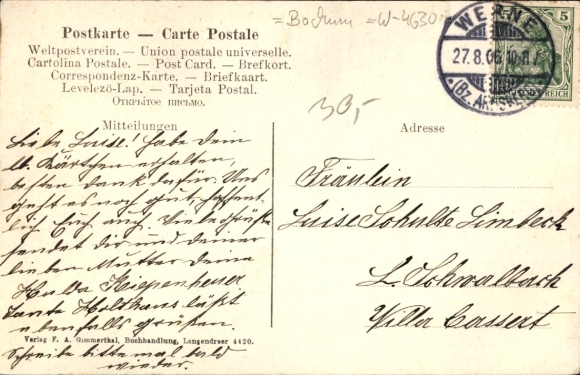 =Bochum =W-4630
WERNE
27.8.06 10-11 V
(Bz. ARNSBERG)
5
DEUTSCHES REICH
Postkarte — Carte Postale
Weltpostverein. — Union postale universelle.
Cartolina Postale. — Post Card. — Brefkort.
Correspondenz-Karte. — Briefkaart.
Levelező-Lap. — Tarjeta Postal.
Открытое письмо.
30,-
Mitteilungen
Adresse
Liebe Luise! habe dein
lb. Kärtchen erhalten,
besten dank dafür. Uns
geht es noch gut, hoffent-
lich Euch auch. Viele Grüße
sendet dir und deiner
lieben Mutter deine
Hulda Kiepenheuer
Tante Holthaus läßt
ebenfalls grüßen.
Schreibe bitte mal bald
wieder.
Fräulein
Luise Schulte Limbeck
L. Schwalbach
Villa Cassert
Verlag F. A. Gimmerthal, Buchhandlung, Langendreer 4420.